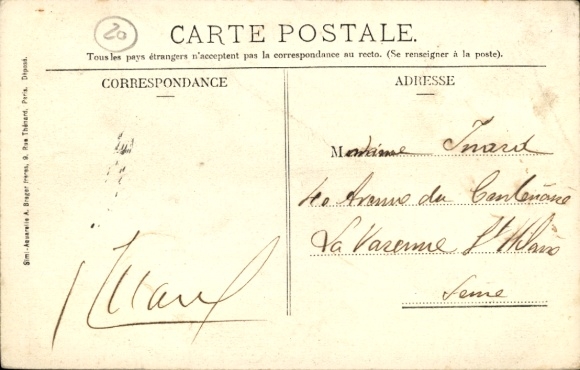 20
CARTE POSTALE.
Tous les pays étrangers n'acceptent pas la correspondance au recto. (Se renseigner à la poste).
CORRESPONDANCE
ADRESSE
Simi-Aquarelle A. Breger Frères, 9, Rue Thénard, Paris. Déposé.
Madame
40 Avenue du Centenaire
La Varenne St Hilaire
Seine